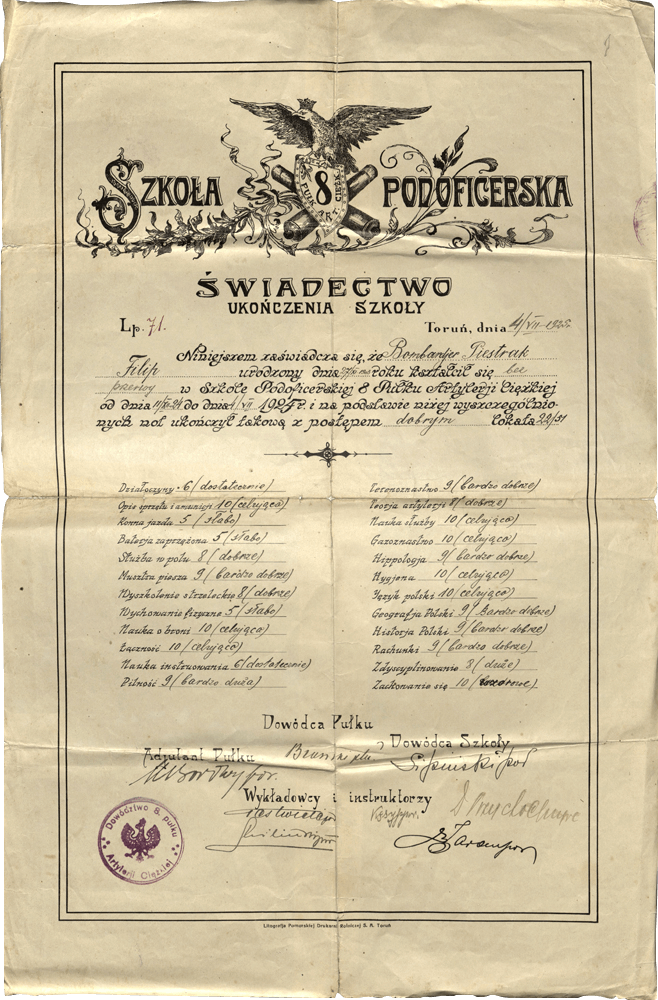 SZKOŁA PODOFICERSKA
8
PUŁK ART. CIĘŻ.
ŚWIADECTWO
UKOŃCZENIA SZKOŁY
Lp. 71. Toruń, dnia 4/VII-1925r.
Niniejszem zaświadcza się, że Bombardjer Piestrak
Filip urodzony dnia roku kształcił się bez
przerwy w Szkole Podoficerskiej 8 Pułku Artylerji Ciężkiej
od dnia 11/XI-24 do dnia 4/VII 1925 r. i na podstawie niżej wyszczególnio-
nych not ukończył takową z postępem dobrym lokata 22/51
Działoczyny 6 (dostatecznie)
Opis sprzętu i amunicji 10 (celująco)
Konna jazda 5 (słabo)
Baterja zaprzężona 5 (słabo)
Służba w polu 8 (dobrze)
Musztra piesza 9 (bardzo dobrze)
Wyszkolenie strzeleckie 8 (dobrze)
Wychowanie fizyczne 5 (słabo)
Nauka o broni 10 (celująco)
Łączność 10 (celująco)
Nauka instruowania 6 (dostatecznie)
Pilność 9 (bardzo duża)
Terenoznastwo 9 (bardzo dobrze)
Teorja artylerji 8 (dobrze)
Nauka służby 10 (celująco)
Gazoznastwo 10 (celująco)
Hippologja 9 (bardzo dobrze)
Hygjena 10 (celująco)
Język polski 10 (celująco)
Geografja Polski 9 (bardzo dobrze)
Historja Polski 9 (bardzo dobrze)
Rachunki 9 (bardzo dobrze)
Zdyscyplinowanie 8 (duże)
Zachowanie się 10 (wzorowe)
Dowódca Pułku
Adjutant Pułku Dowódca Szkoły
Wykładowcy i instruktorzy
Dowództwo 8. pułku
Artylerji Ciężkiej
Litografja Pomorskiej Drukarni Rolniczej S. A. Toruń